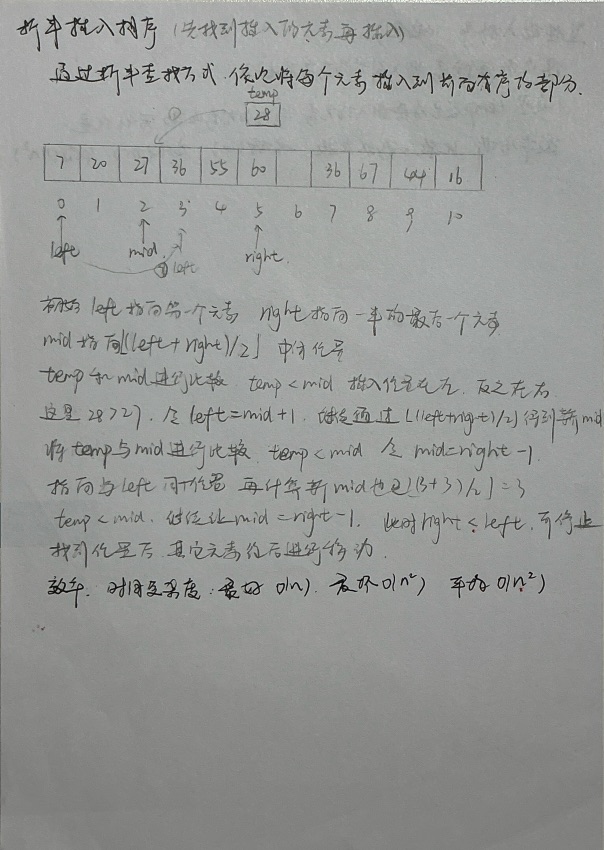 折半插入排序 (先找到插入的元素再插入)
通过折半查找方式，依次将每个元素插入到前面有序的部分.
temp
① 28
7 20 27 36 55 60 36 67 44 16
0 1 2 3 4 5 6 7 8 9 10
left mid ② left right.
初始 left 指向第一个元素 right 指向一半的最后一个元素
mid 指向⌊(left+right)/2⌋ 中间位置
temp和mid进行比较. temp<mid 插入位置在左, 反之在右.
这里 28>27. 令 left=mid+1, 继续通过⌊(left+right)/2⌋得到新mid
将temp与mid进行比较. temp<mid 令 mid=right-1.
指向与left 同个位置 再计算新mid也是⌊(3+3)/2⌋=3
temp<mid. 继续让mid=right-1. 此时right<left, 可停止
找到位置后. 其它元素往后进行移动.
效率. 时间复杂度: 最好 O(n). 最坏O(n²) 平均 O(n²)